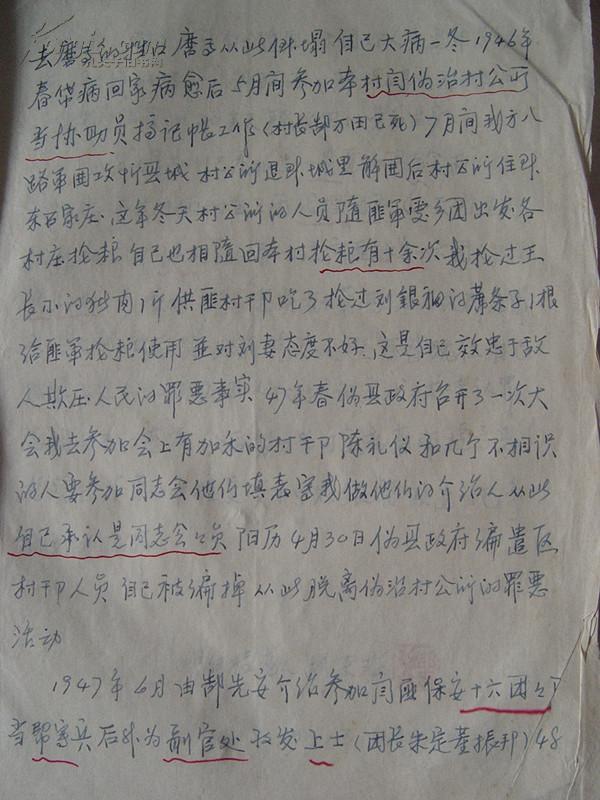 去磨 从此倒塌自己大病一冬1946年
春带病回家病愈后5月间参加本村闫伪治村公所
当协助员搞记帐工作(村长郜万田已死)7月间我方八
路军围攻忻县城村公所退到城里解围后村公所住到
东石家庄.这年冬天村公所的人员随匪军爱乡团出发各
村庄抢粮自己也相随回本村抢粮有十余次我抢过王
长小的猪肉1斤供匪村干卩吃了抢过刘银祖的蓆条子1根
给匪军抢粮使用並对刘妻态度不好.这是自己效忠于敌
人欺压人民的罪恶事实47年春伪县政府召开了一次大
会我去参加会上有加禾的村干卩陈礼仪和几个不相识
的人要参加同志会他们填表写我做他们的介绍人从此
自己承认是同志会会员阳历4月30日伪县政府编遣区
村干卩人员自己被编掉从此脱离伪治村公所的罪恶
活动
1947年6月由郜先安介绍参加闫匪保安十六团
当帮写兵后升为副官处收发上士(团长朱定董振邦)48